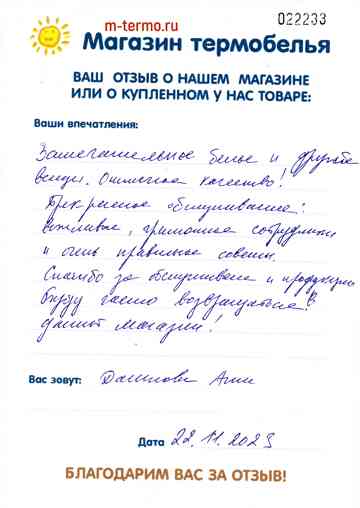 m-termo.ru
022233
Магазин термобелья
ВАШ ОТЗЫВ О НАШЕМ МАГАЗИНЕ
ИЛИ О КУПЛЕННОМ У НАС ТОВАРЕ:
Ваши впечатления:
Замечательное белье и другие
вещи. Отличное качество!
Прекрасное обслуживание:
вежливые, грамотные сотрудники
и очень правильные советы.
Спасибо за обслуживание и продукцию
буду часто возвращаться в
данный магазин!
Вас зовут:
Дата 22.11.2023
БЛАГОДАРИМ ВАС ЗА ОТЗЫВ!